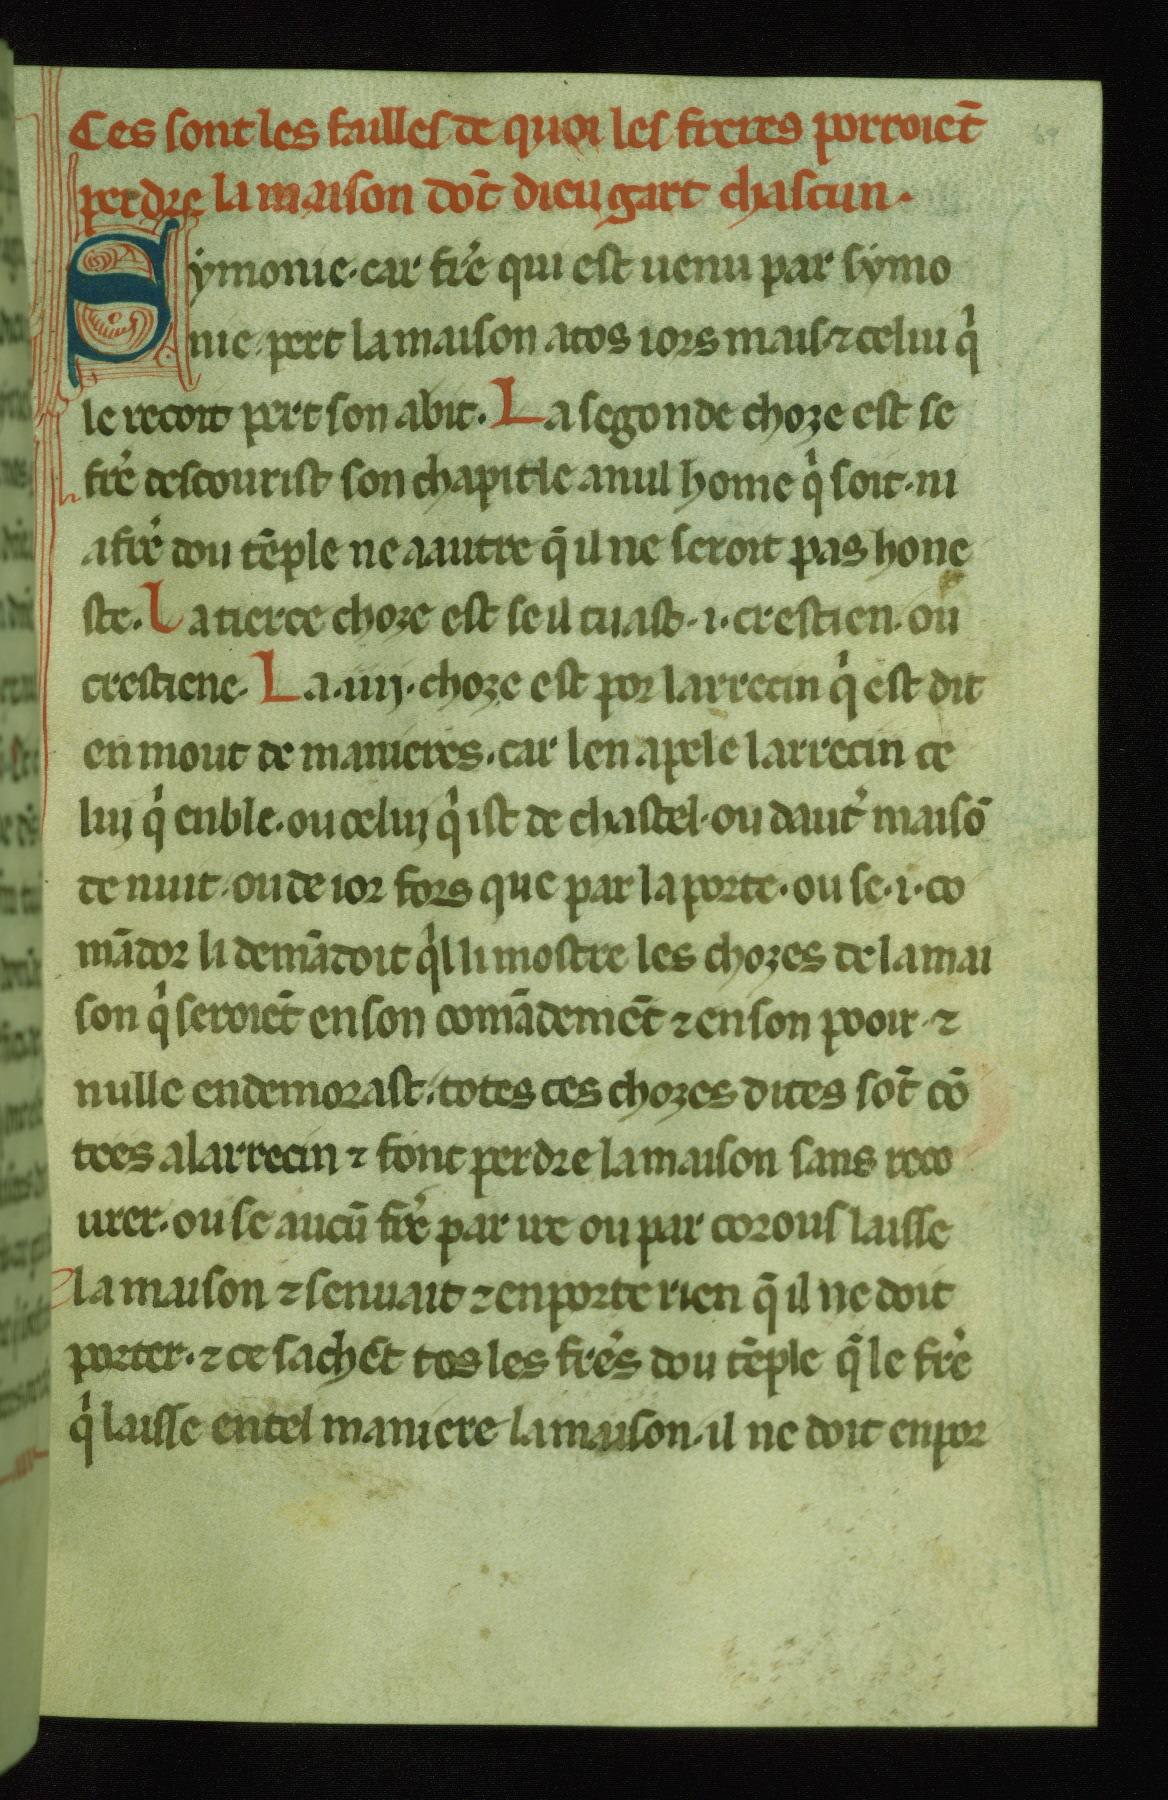 Ces sont les failles de quoi les freres porroiēt
perdre la maison dōt dieu gart chascun.
Symonie. car frē qui est uenu par symo
nie. pert la maison a tos iors mais. ⁊ celui q̇
le recoit pert son abit. La segonde choze est se
frē descourist son chapitle a nul home q̇ soit. ni
a frē dou tēple ne a autre q̄ il ne seroit pas hone
ste. La tierce choze est se il tuast .i. crestien. ou
crestiene. La .iiij. choze est por larrecin q̇ est dit
en mout de manieres. car len apele larrecin ce
luj q̇ enble. ou celuj q̇ ist de chastel. ou daut̉ maisō
de nuit. ou de ior fors que par la porte. ou se .i. co
mādor li demādoit q̇l li mostre les chozes de la mai
son q̇ seroiēt en son comādemēt ⁊ en son pooir. ⁊
nulle en demorast. totes ces chozes dites sōt cō
tees a larrecin ⁊ font perdre la maison sans reco
urer. ou se aucū frē par ire ou par corous laisse
la maison ⁊ senuait ⁊ enporte rien q̄ il ne doit
porter. ⁊ ce sachēt tos les frēs dou tēple q̄ le frē
q̇ laisse en tel maniere la maison. il ne doit enpor